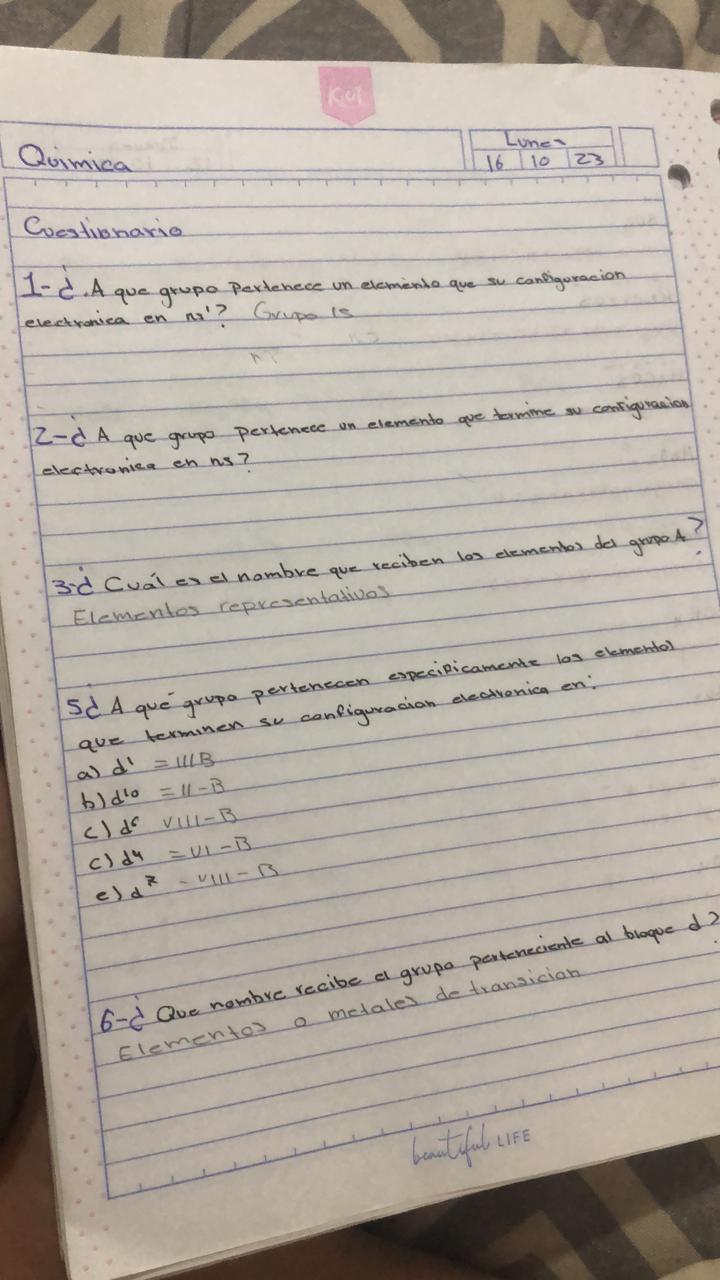 Kut
Lunes
Química
16 10 23
Cuestionario
1-¿. A que grupo Pertenece un elemento que su configuracion
electronica en ns¹? Grupo 1s
n?
2-¿ A que grupo Pertenece un elemento que termine su configuracion
electronica en ns?
3-¿ Cuál es el nombre que reciben los elementos del grupo A?
Elementos representativos
5¿ A qué grupo pertenecen especificamente los elementos
que terminen su configuracion electronica en:
a) d¹ = III B
b) d¹⁰ = II - B
c) d⁶ VIII - B
c) d⁴ = VI - B
e) d⁷ - VIII - B
6-¿ Que nombre recibe el grupo perteneciente al bloque d?
Elementos o metales de transicion
beautiful LIFE